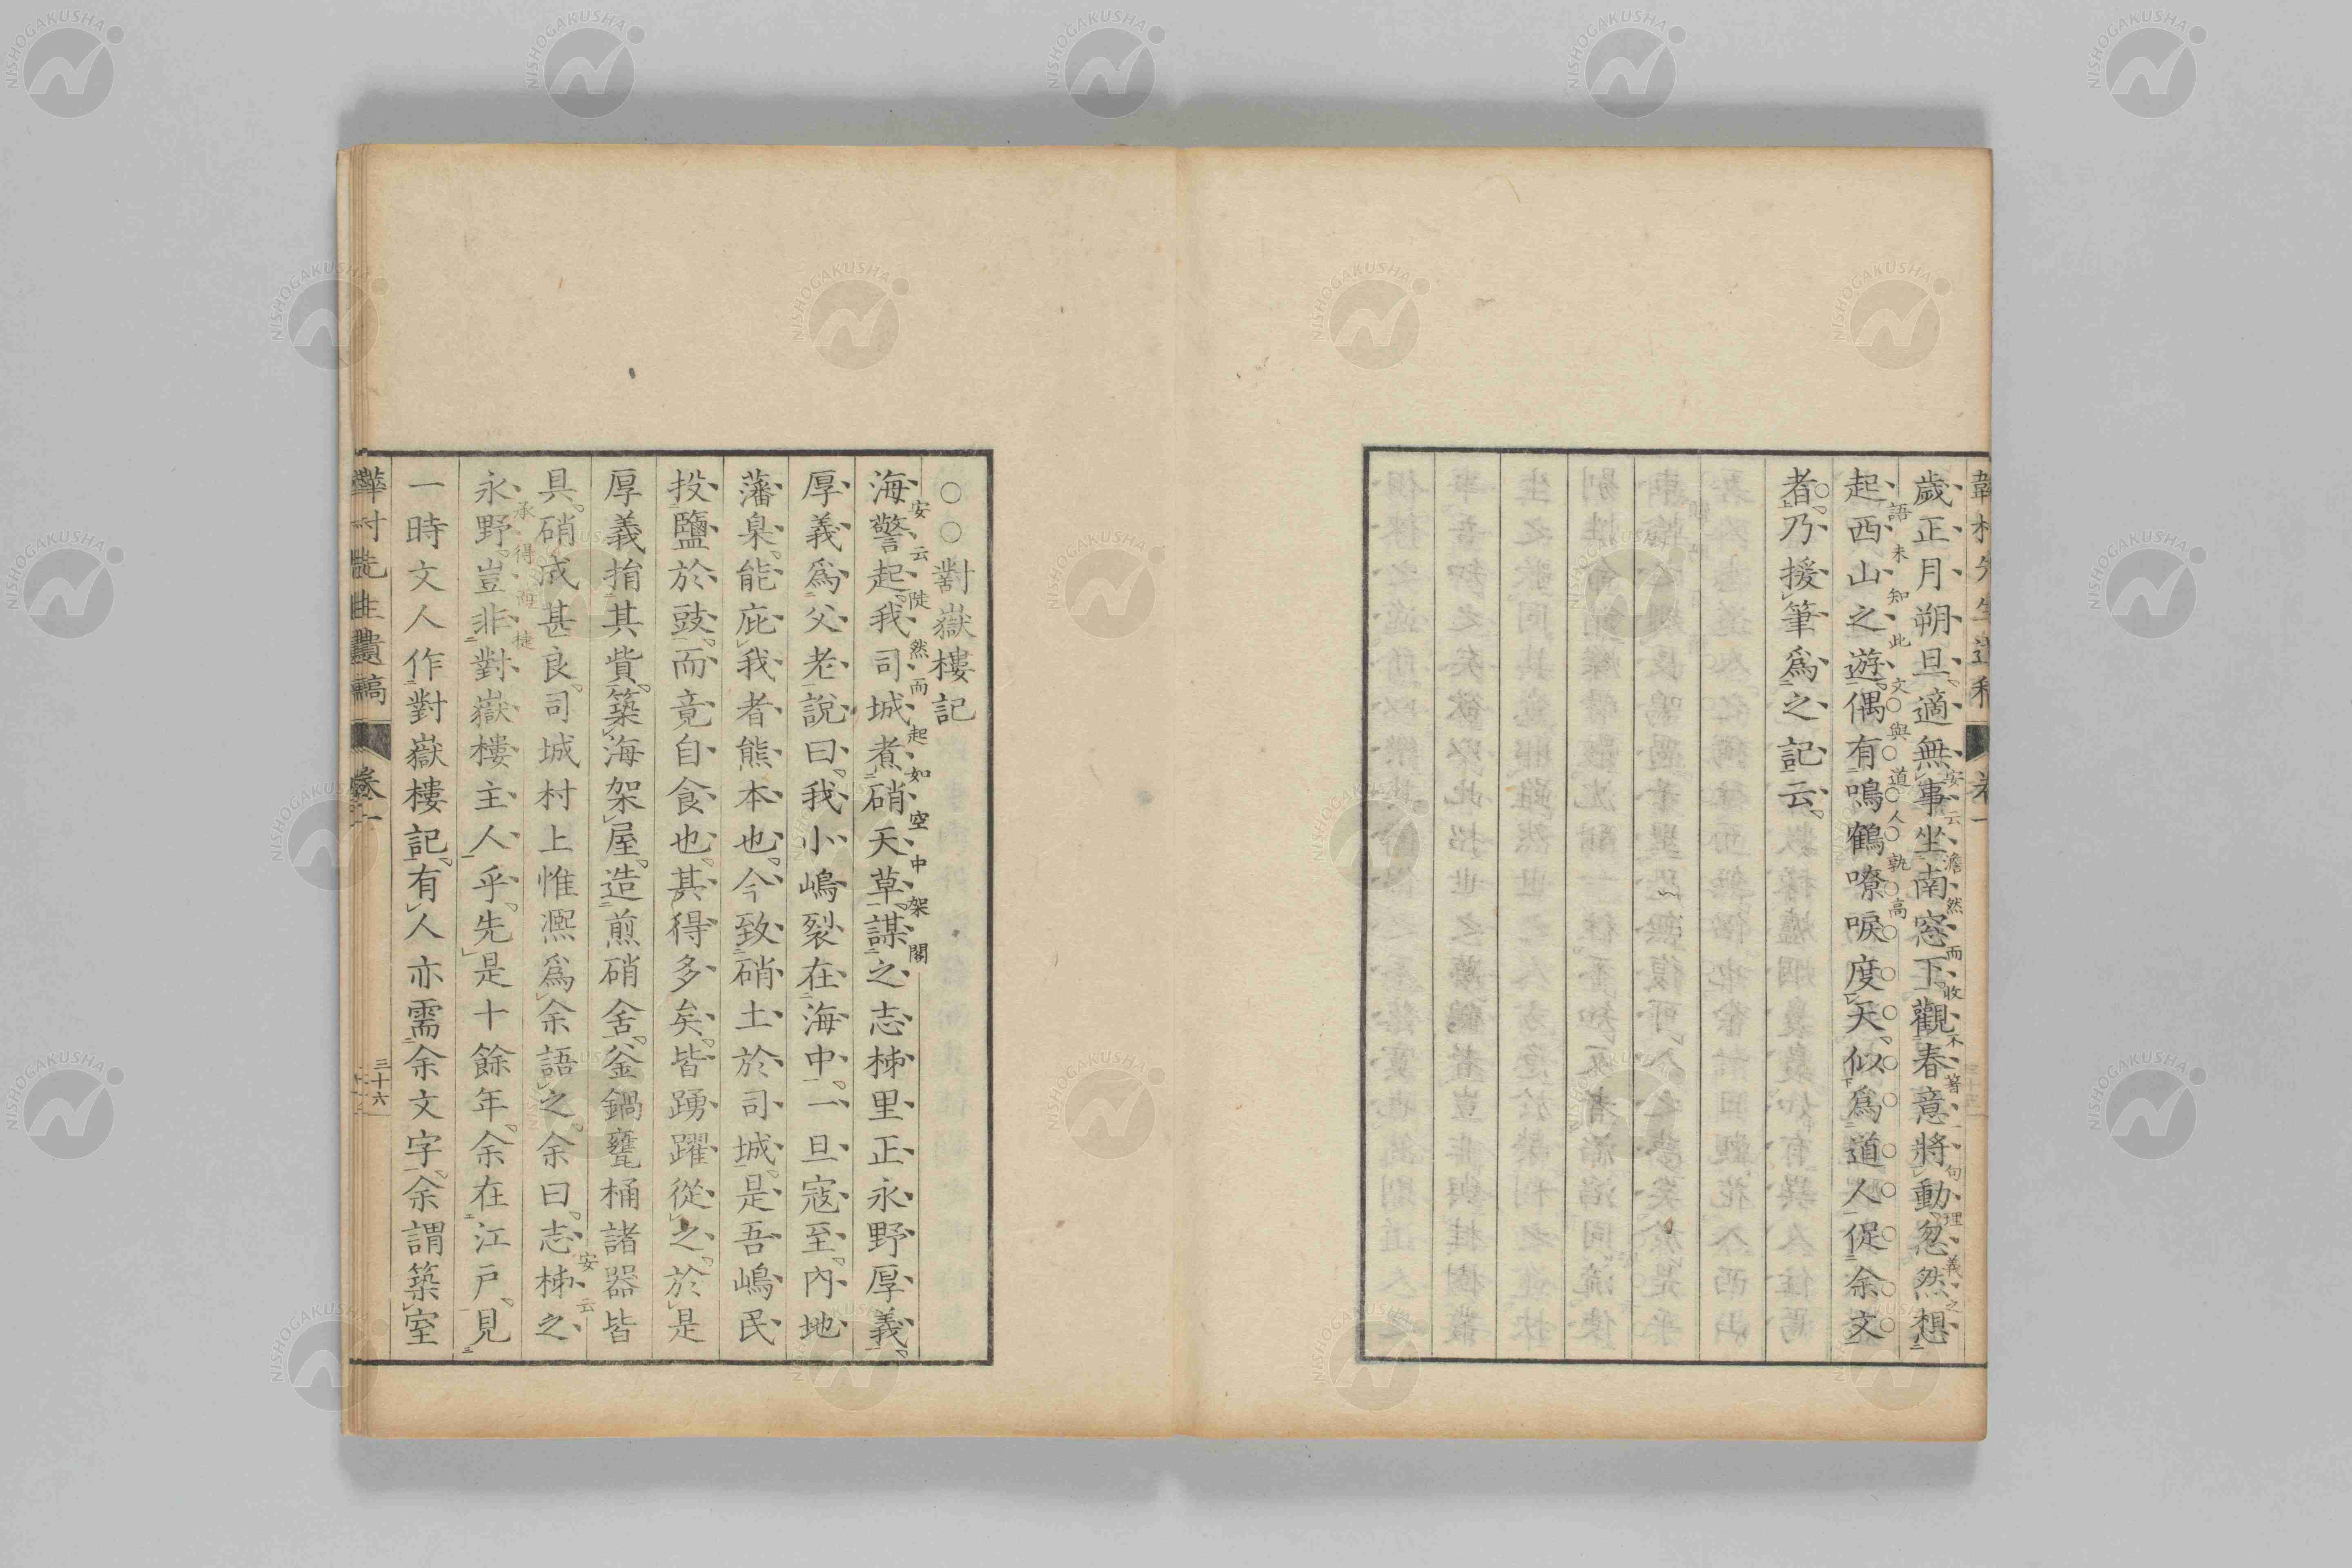 歲正月朔旦適無事坐南窓下觀春意將動忽然想
安云澹然而收不著一句理義之
起西山之遊偶有鳴鶴嘹唳度天似爲道人促余文
語未知此文與道人孰高
者乃援筆爲之記云
○○對嶽樓記
海警起我司城煮硝天草謀之志柹里正永野厚義
安云陡然而起如空中架閣
厚義爲父老說曰我小嶋裂在海中一旦寇至內地
藩臬能庇我者熊本也今致硝土於司城是吾嶋民
投鹽於豉而竟自食也其得多矣皆踴躍從之於是
厚義捐其貲築海架屋造煎硝舍釜鍋甕桶諸器皆
具硝成甚良司城村上惟凞爲余語之余曰志柹之
安云
永野豈非對嶽樓主人乎先是十餘年余在江戶見
承得
捷
一時文人作對嶽樓記有人亦需余文字余謂築室
韡村先生遺稿
卷一
三十六
NISHOGAKUSHA